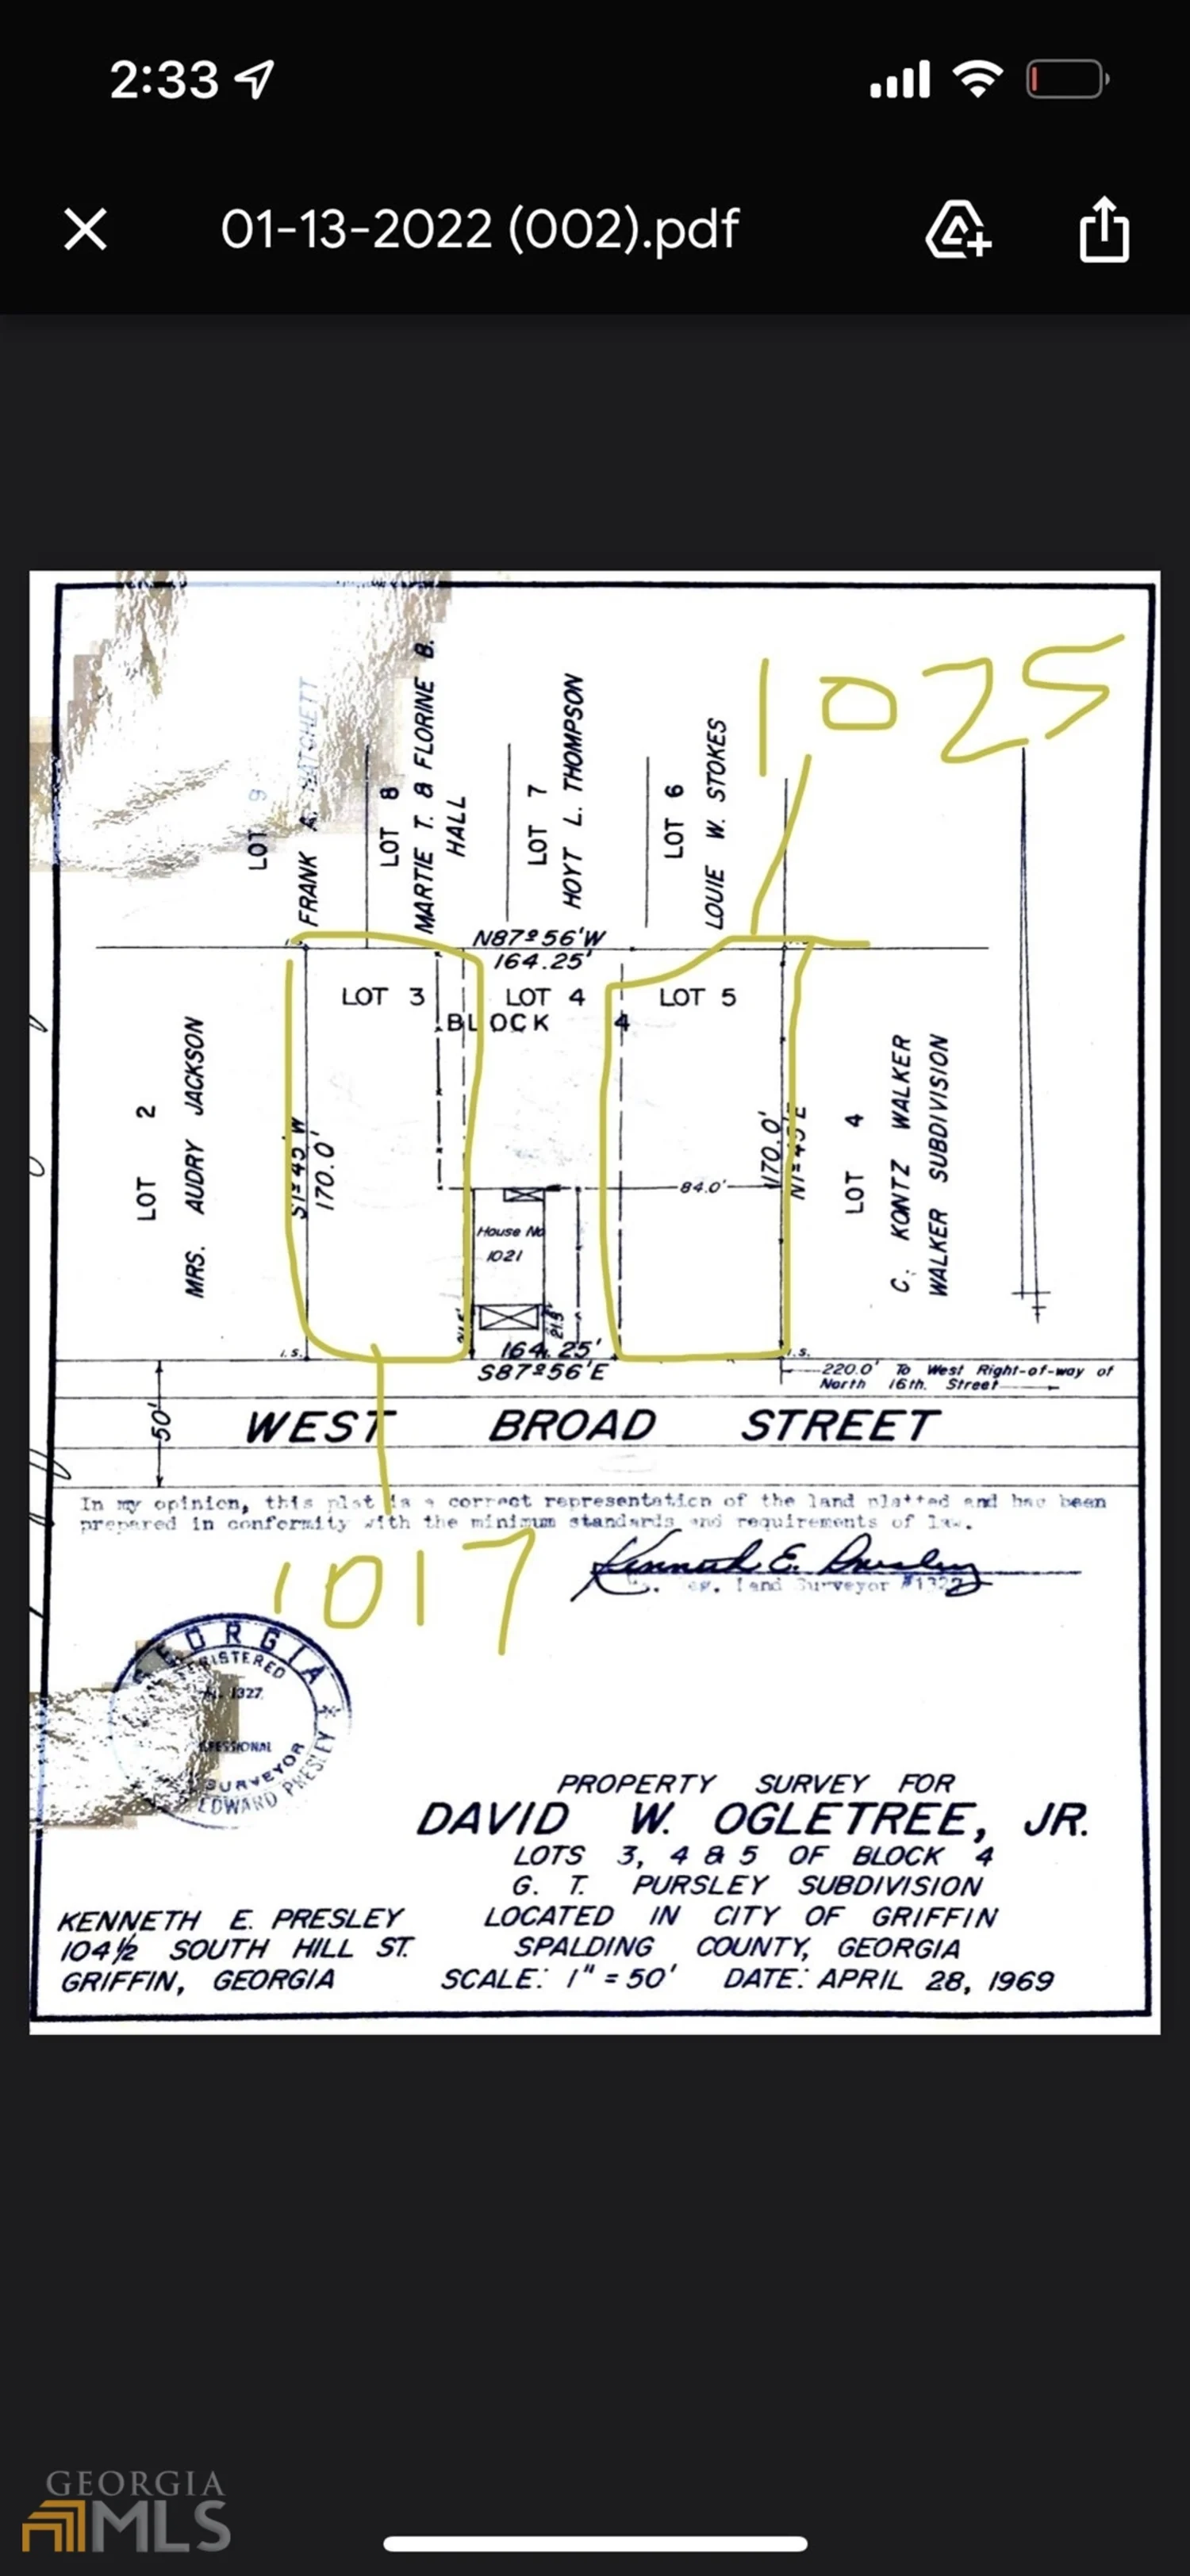 2:33
01-13-2022 (002).pdf
1025
LOT 9
FRANK A.
LOT 8
MARTIE T. & FLORINE B.
HALL
LOT 7
HOYT L. THOMPSON
LOT 6
LOUIE W. STOKES
N87º56'W
164.25'
LOT 3
LOT 4
LOT 5
BLOCK 4
LOT 2
MRS. AUDRY JACKSON
S1º45'W
170.0'
84.0'
170.0'
N1º45'E
LOT 4
C. KONTZ WALKER
WALKER SUBDIVISION
House No
1021
21.5'
164.25'
S87º56'E
I.S.
I.S.
220.0' To West Right-of-way of
North 16th. Street
50'
WEST BROAD STREET
In my opinion, this plat is a correct representation of the land platted and has been
prepared in conformity with the minimum standards and requirements of law.
1017
Kenneth E. Presley
Land Surveyor #1327
GEORGIA
REGISTERED
1327
SURVEYOR
EDWARD PRESLEY
PROPERTY SURVEY FOR
DAVID W. OGLETREE, JR.
LOTS 3, 4 & 5 OF BLOCK 4
G. T. PURSLEY SUBDIVISION
LOCATED IN CITY OF GRIFFIN
SPALDING COUNTY, GEORGIA
SCALE: 1" = 50' DATE: APRIL 28, 1969
KENNETH E. PRESLEY
104½ SOUTH HILL ST.
GRIFFIN, GEORGIA
GEORGIA
MLS